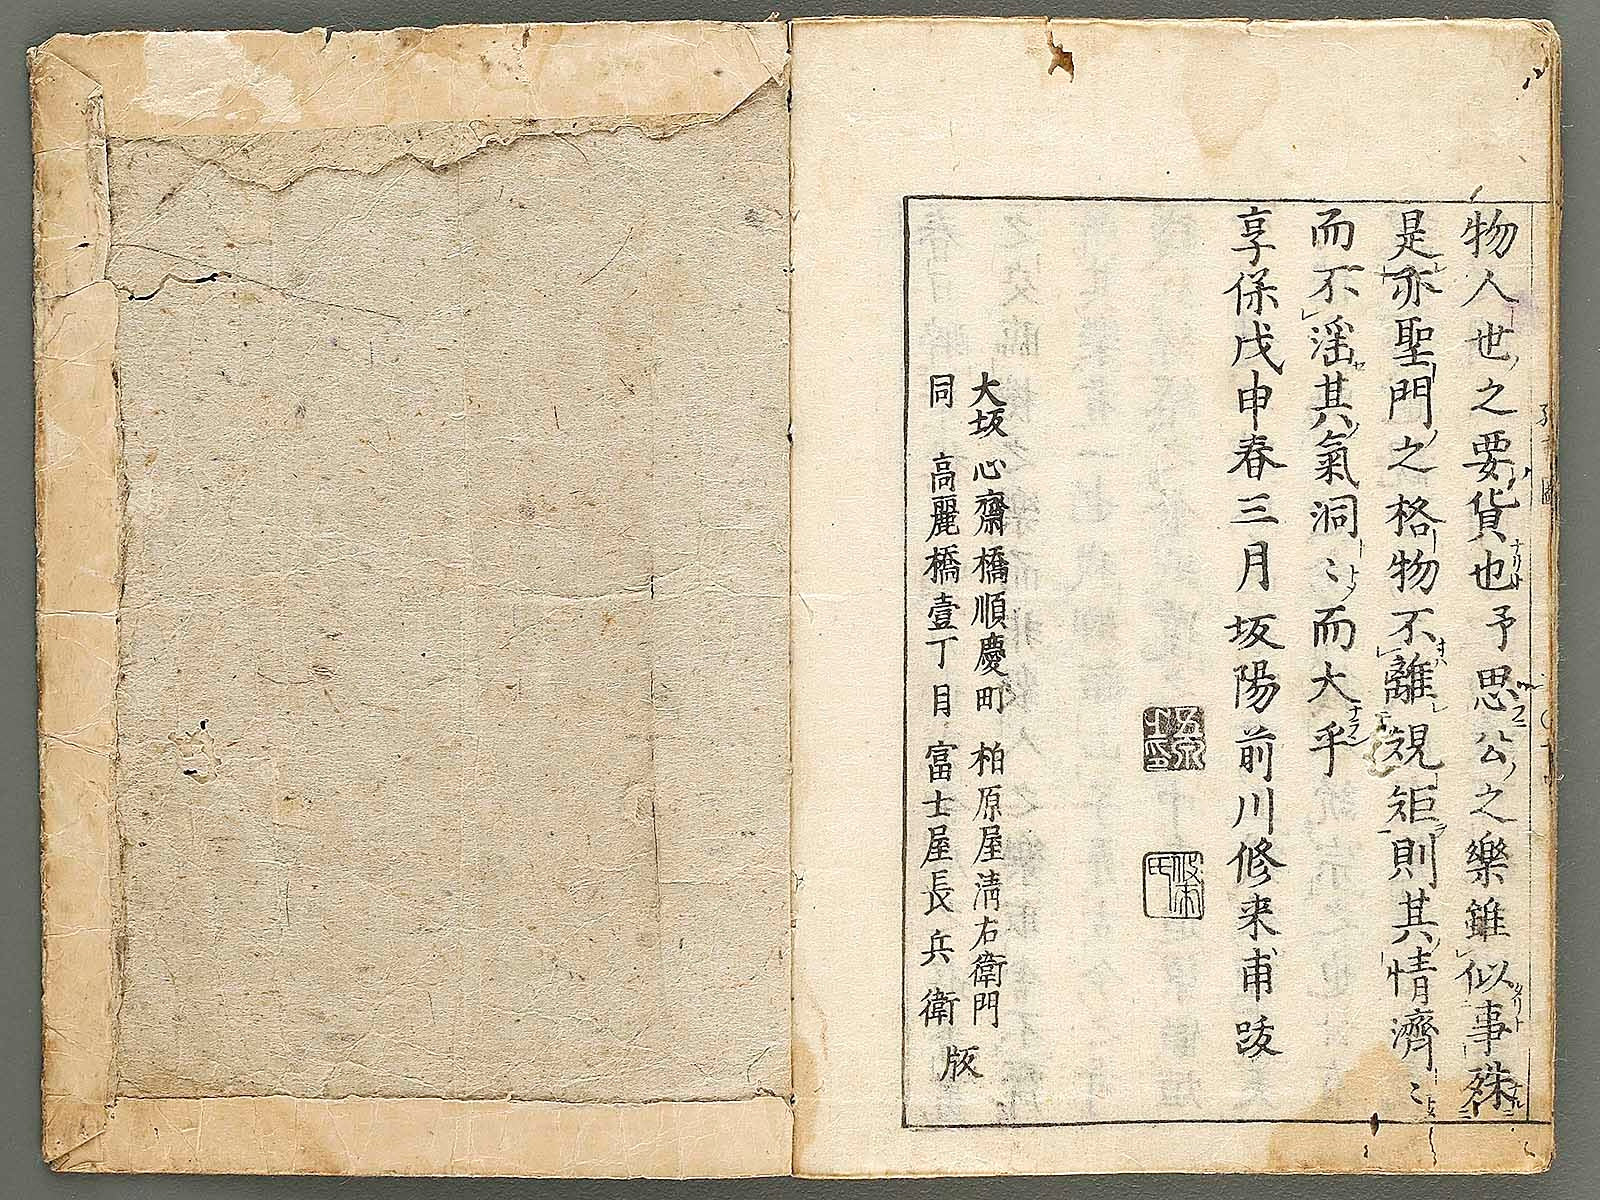 物人世之要貨也予思公之樂雖似事殊
是亦聖門之格物不離規矩則其情濟〻
而不滛其氣洞〻而大乎
享保戊申春三月坂陽前川修来甫跋
大坂心齋橋順慶町 柏原屋清右衛門
同 高麗橋壹丁目 富士屋長兵衛
版